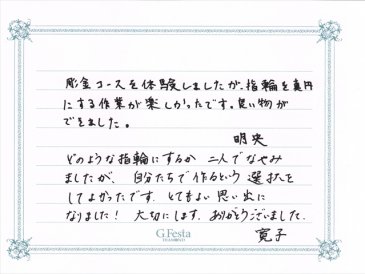 彫金コースを体験しましたが、指輪を真円
にする作業が楽しかったです。良い物が
できました。
明央
どのような指輪にするか 二人でなやみ
ましたが、自分たちで作るという 選択を
してよかったです。とてもよい思い出に
なりました! 大切にします。ありがとうございました。
G.Festa
DIAMOND
寛子